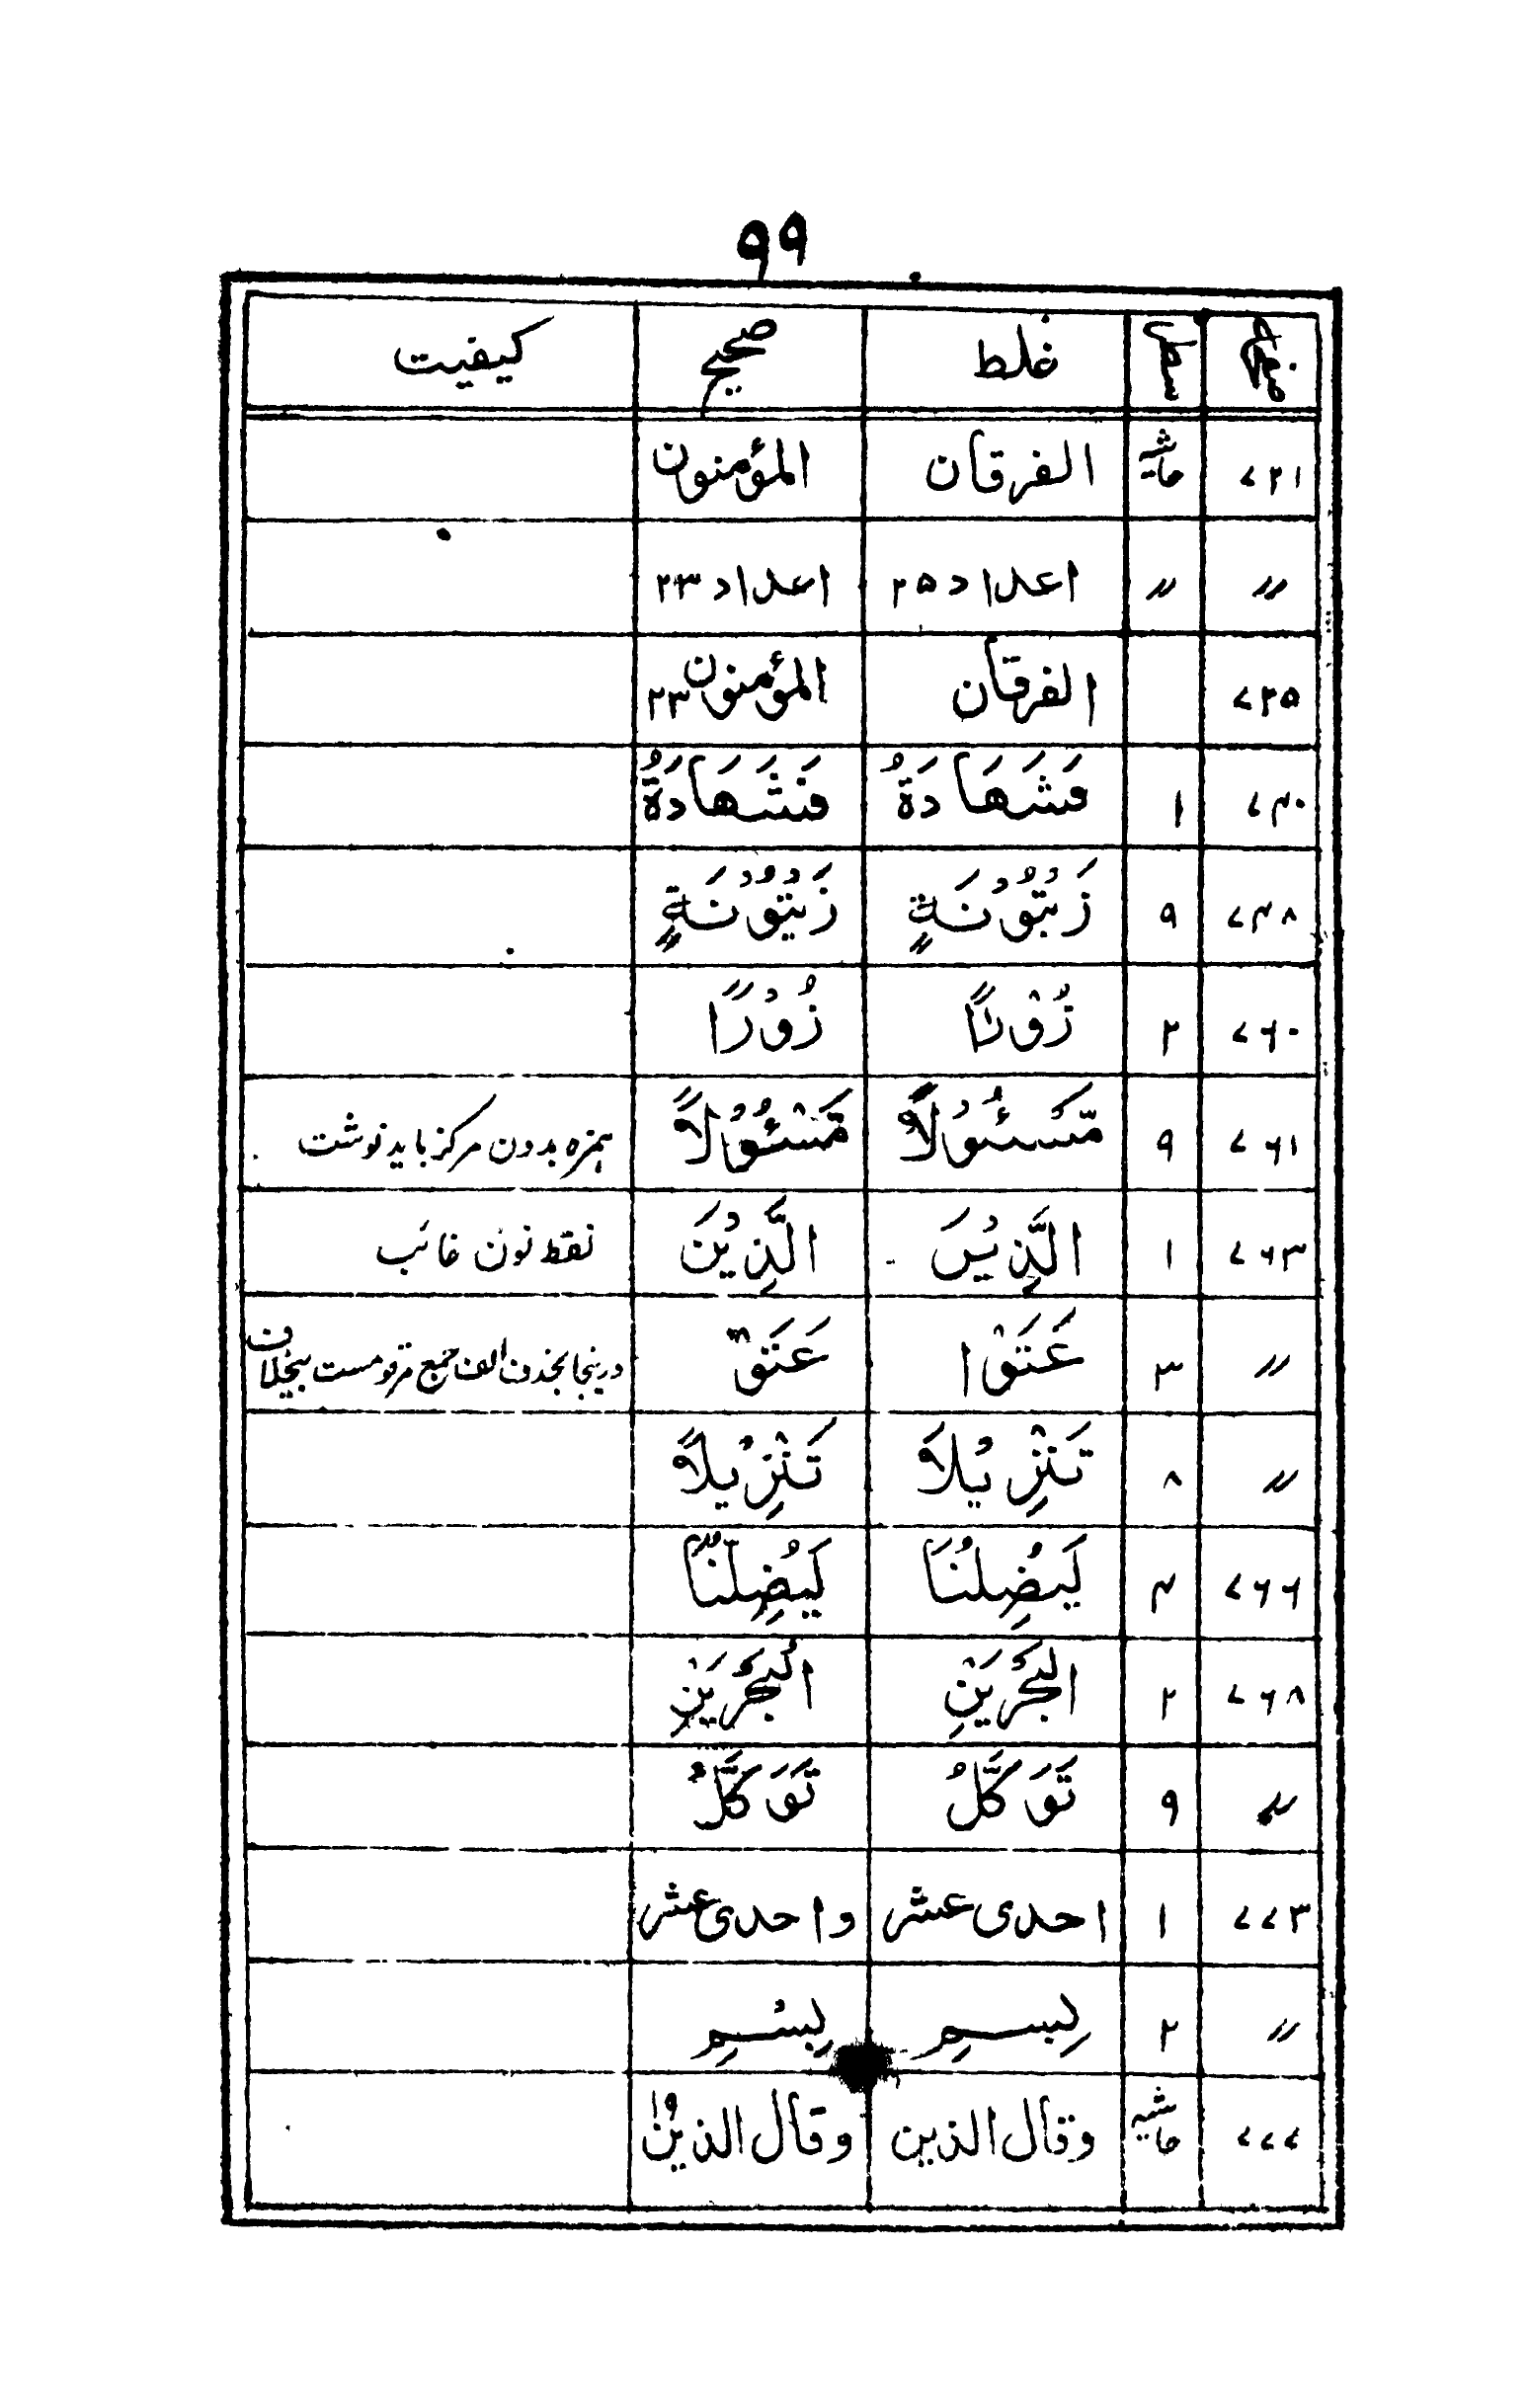 ۹۹
صفحہ سطر غلط صحیح کیفیت
۷۲۱ حاشیہ الفرقان المؤمنون
〃 〃 اعداد ۲۵ اعداد ۲۳
۷۲۵ الفرقان المؤمنون ۲۳
۷۴۰ ۱ فَشَهَادَةُ فَشَهَادَةُ
۷۴۸ ۹ زَيْتُوْنَةٍ زَيْتُوْنَةٍ
۷۶۰ ۲ زُوْرًا زُوْرًا
۷۶۱ ۹ مَّسْئُوْلًا مَّسْئُوْلًا ہمزہ بدون مرکز باید نوشت
۷۶۳ ۱ الَّذِيْں الَّذِيْنَ نقط نون غائب
〃 ۳ عَتَوْا عَتَوْ درینجا بحذف الف جمع مرقومست بیخلاف
〃 ۸ تَنْزِيْلًا تَنْزِيْلًا
۷۶۶ ۴ لَيُضِلُّنَا لَيُضِلُّنَا
۷۶۸ ۲ الْبَحْرَيْنِ الْبَحْرَيْنِ
〃 ۹ تَوَكَّلْ تَوَكَّلْ
۷۷۳ ۱ احدی عشر واحدی عشر
〃 ۲ بِسمِ بِسْمِ
۷۷۷ حاشیہ وقال الذین وقال الذین ۱۹